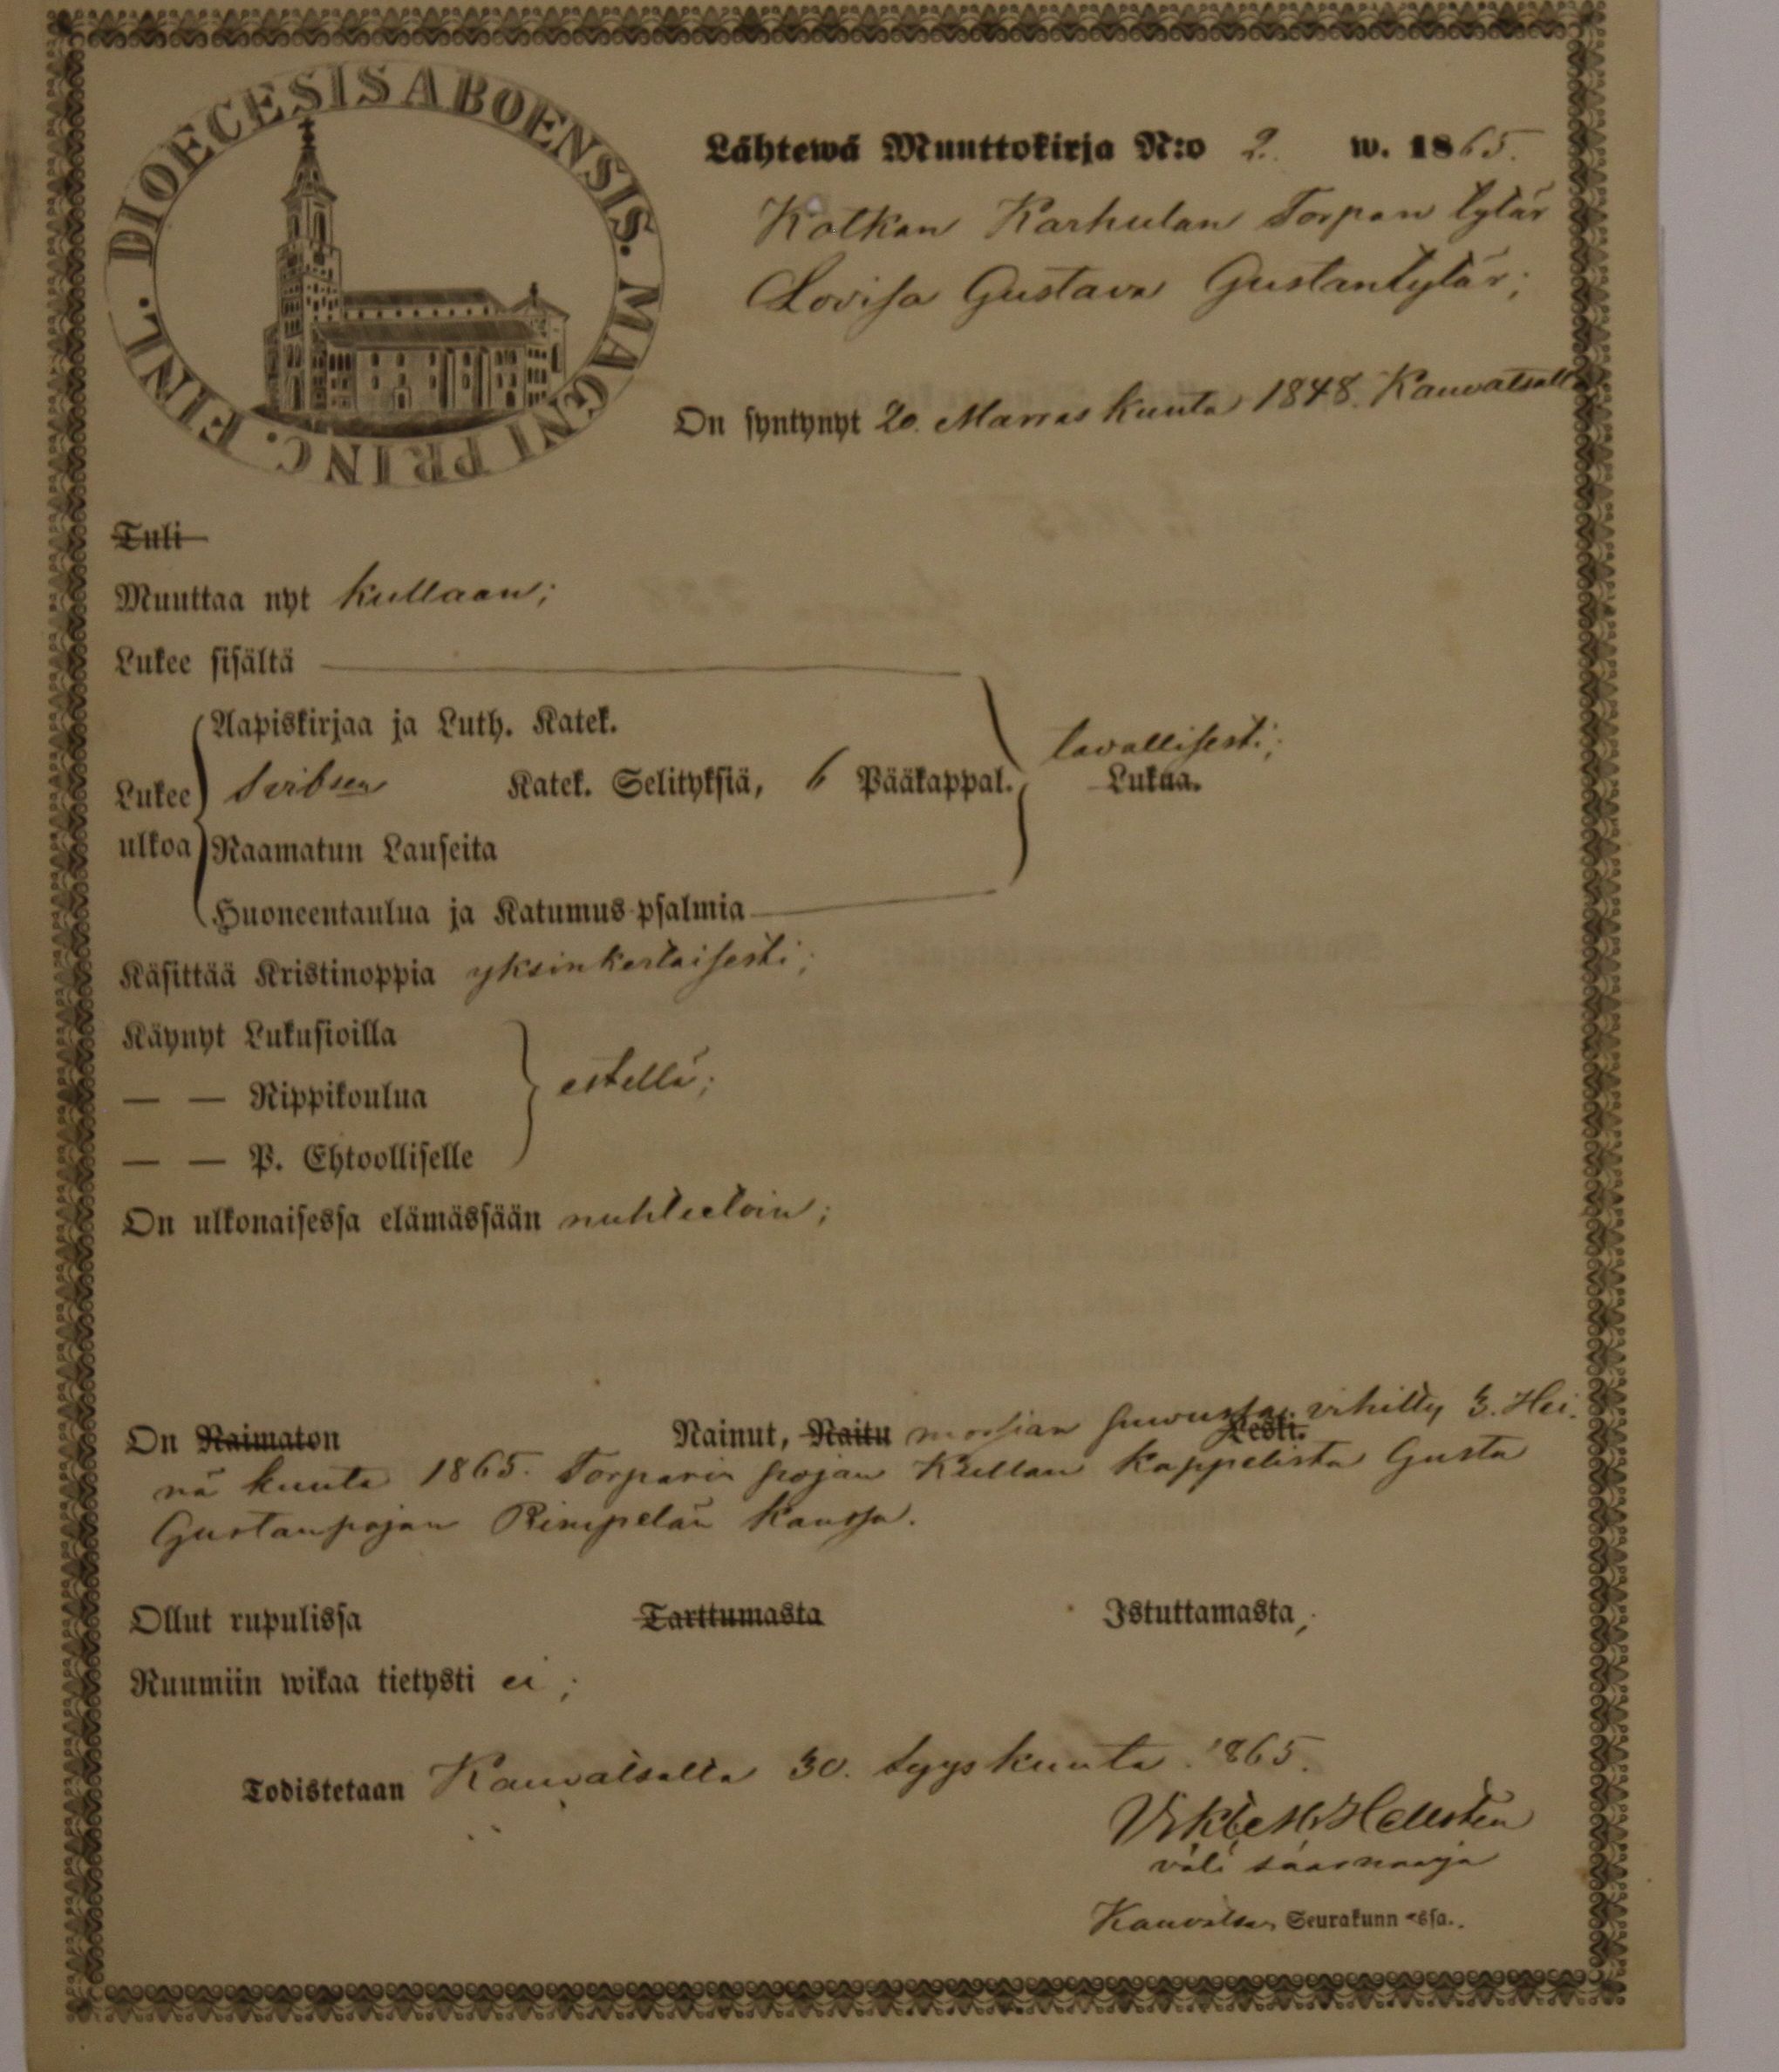 DIOECESIS ABOENSIS. MAGNI PRINC. FINL.
Lähtewä Muuttokirja N:o 2. w. 1865.
Kotkan Karhulan Torpan tytär
Lovisa Gustava Gustantytär;
On syntynyt 20. Marraskuuta 1848. Kauvatsalla
Tuli
Muuttaa nyt Kullaan;
Lukee sisältä
Aapiskirjaa ja Luth. Katek.
tavallisesti;
Lukee Svibsen Katek. Selityksiä, 6 Pääkappal. Lukua.
ulkoa Raamatun Lauseita
Huoneentaulua ja Katumus-psalmia
Käsittää Kristinoppia yksinkertaisesti;
Käynyt Lukusioilla
— — Rippikoulua estellä;
— — P. Ehtoolliselle
On ulkonaisessa elämässään nuhteetoin;
On Naimaton Nainut, Naitu morsian vihitty 3. Hei-
Leski.
nä kuuta 1865. Torparin pojan Kullan kappelista Gusta
Gustanpojan Rimpelän kanssa.
Ollut rupulissa Tarttumasta Istuttamasta,
Ruumiin wikaa tietysti ei;
Todistetaan Kauvatsalla 30. Syyskuuta 1865.
Hellstén
väli saarnaaja
Kauvatsan Seurakunnassa.